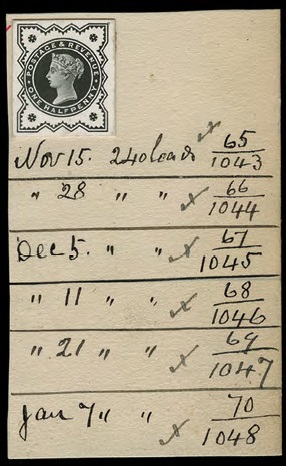 POSTAGE & REVENUE
ONE HALFPENNY
Nov 15. 240 leads 65/1043
" 28 " " 66/1044
Dec 5. " " 67/1045
" 11 " " 68/1046
" 21 " " 69/1047
Jan 7 " " 70/1048